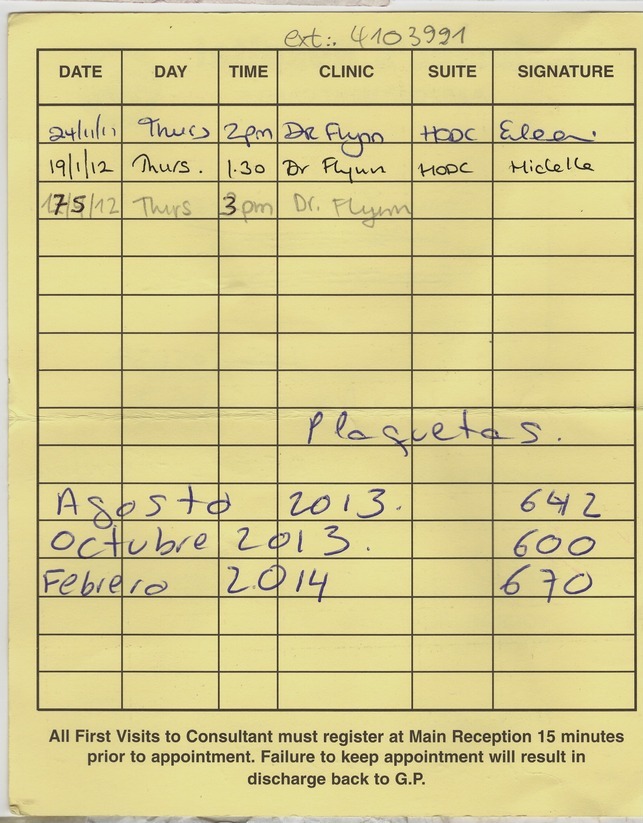 ext:. 4103991
DATE DAY TIME CLINIC SUITE SIGNATURE
24/11/11 Thurs 2pm Dr Flynn HODC Eileen
19/1/12 Thurs. 1.30 Dr Flynn HODC Michelle
/12 Thurs 3pm Dr. Flynn
Plaquetas.
Agosto 2013. 642
Octubre 2013. 600
Febrero 2.014 670
All First Visits to Consultant must register at Main Reception 15 minutes
prior to appointment. Failure to keep appointment will result in
discharge back to G.P.